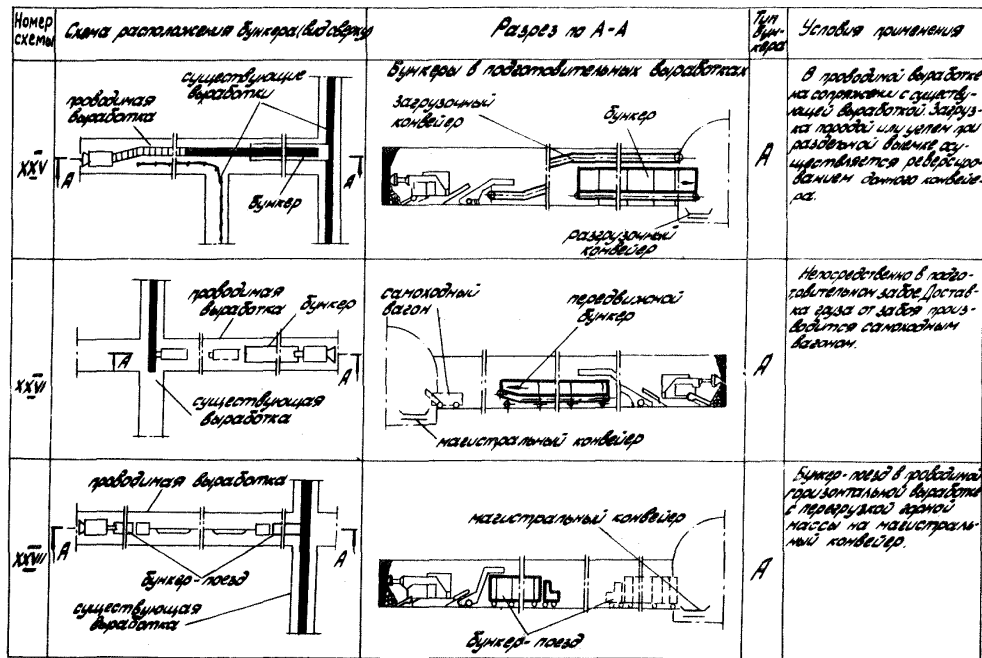 Номер
схемы
Схема расположения бункера (вид сверху)
Разрез по А-А
Тип
бун-
кера
Условия применения
Бункеры в подготовительных выработках
XXV
существующие
выработки
проводимая
выработка
А
А
бункер
загрузочный
конвейер
бункер
разгрузочный
конвейер
А
В проводимой выработке
на сопряжении с существу-
ющей выработкой. Загруз-
ка породой или углем при
раздельной выемке осу-
ществляется реверсиро-
ванием донного конвейе-
ра.
XXVI
проводимая
выработка
бункер
А
А
существующая
выработка
самоходный
вагон
передвижной
бункер
магистральный конвейер
А
Непосредственно в подго-
товительном забое. Достав-
ка груза от забоя произ-
водится самоходным
вагоном.
XXVII
проводимая выработка
А
А
бункер-поезд
существующая
выработка
магистральный конвейер
бункер-поезд
А
Бункер-поезд в проводимой
горизонтальной выработке
с перегрузкой горной
массы на магистраль-
ный конвейер.